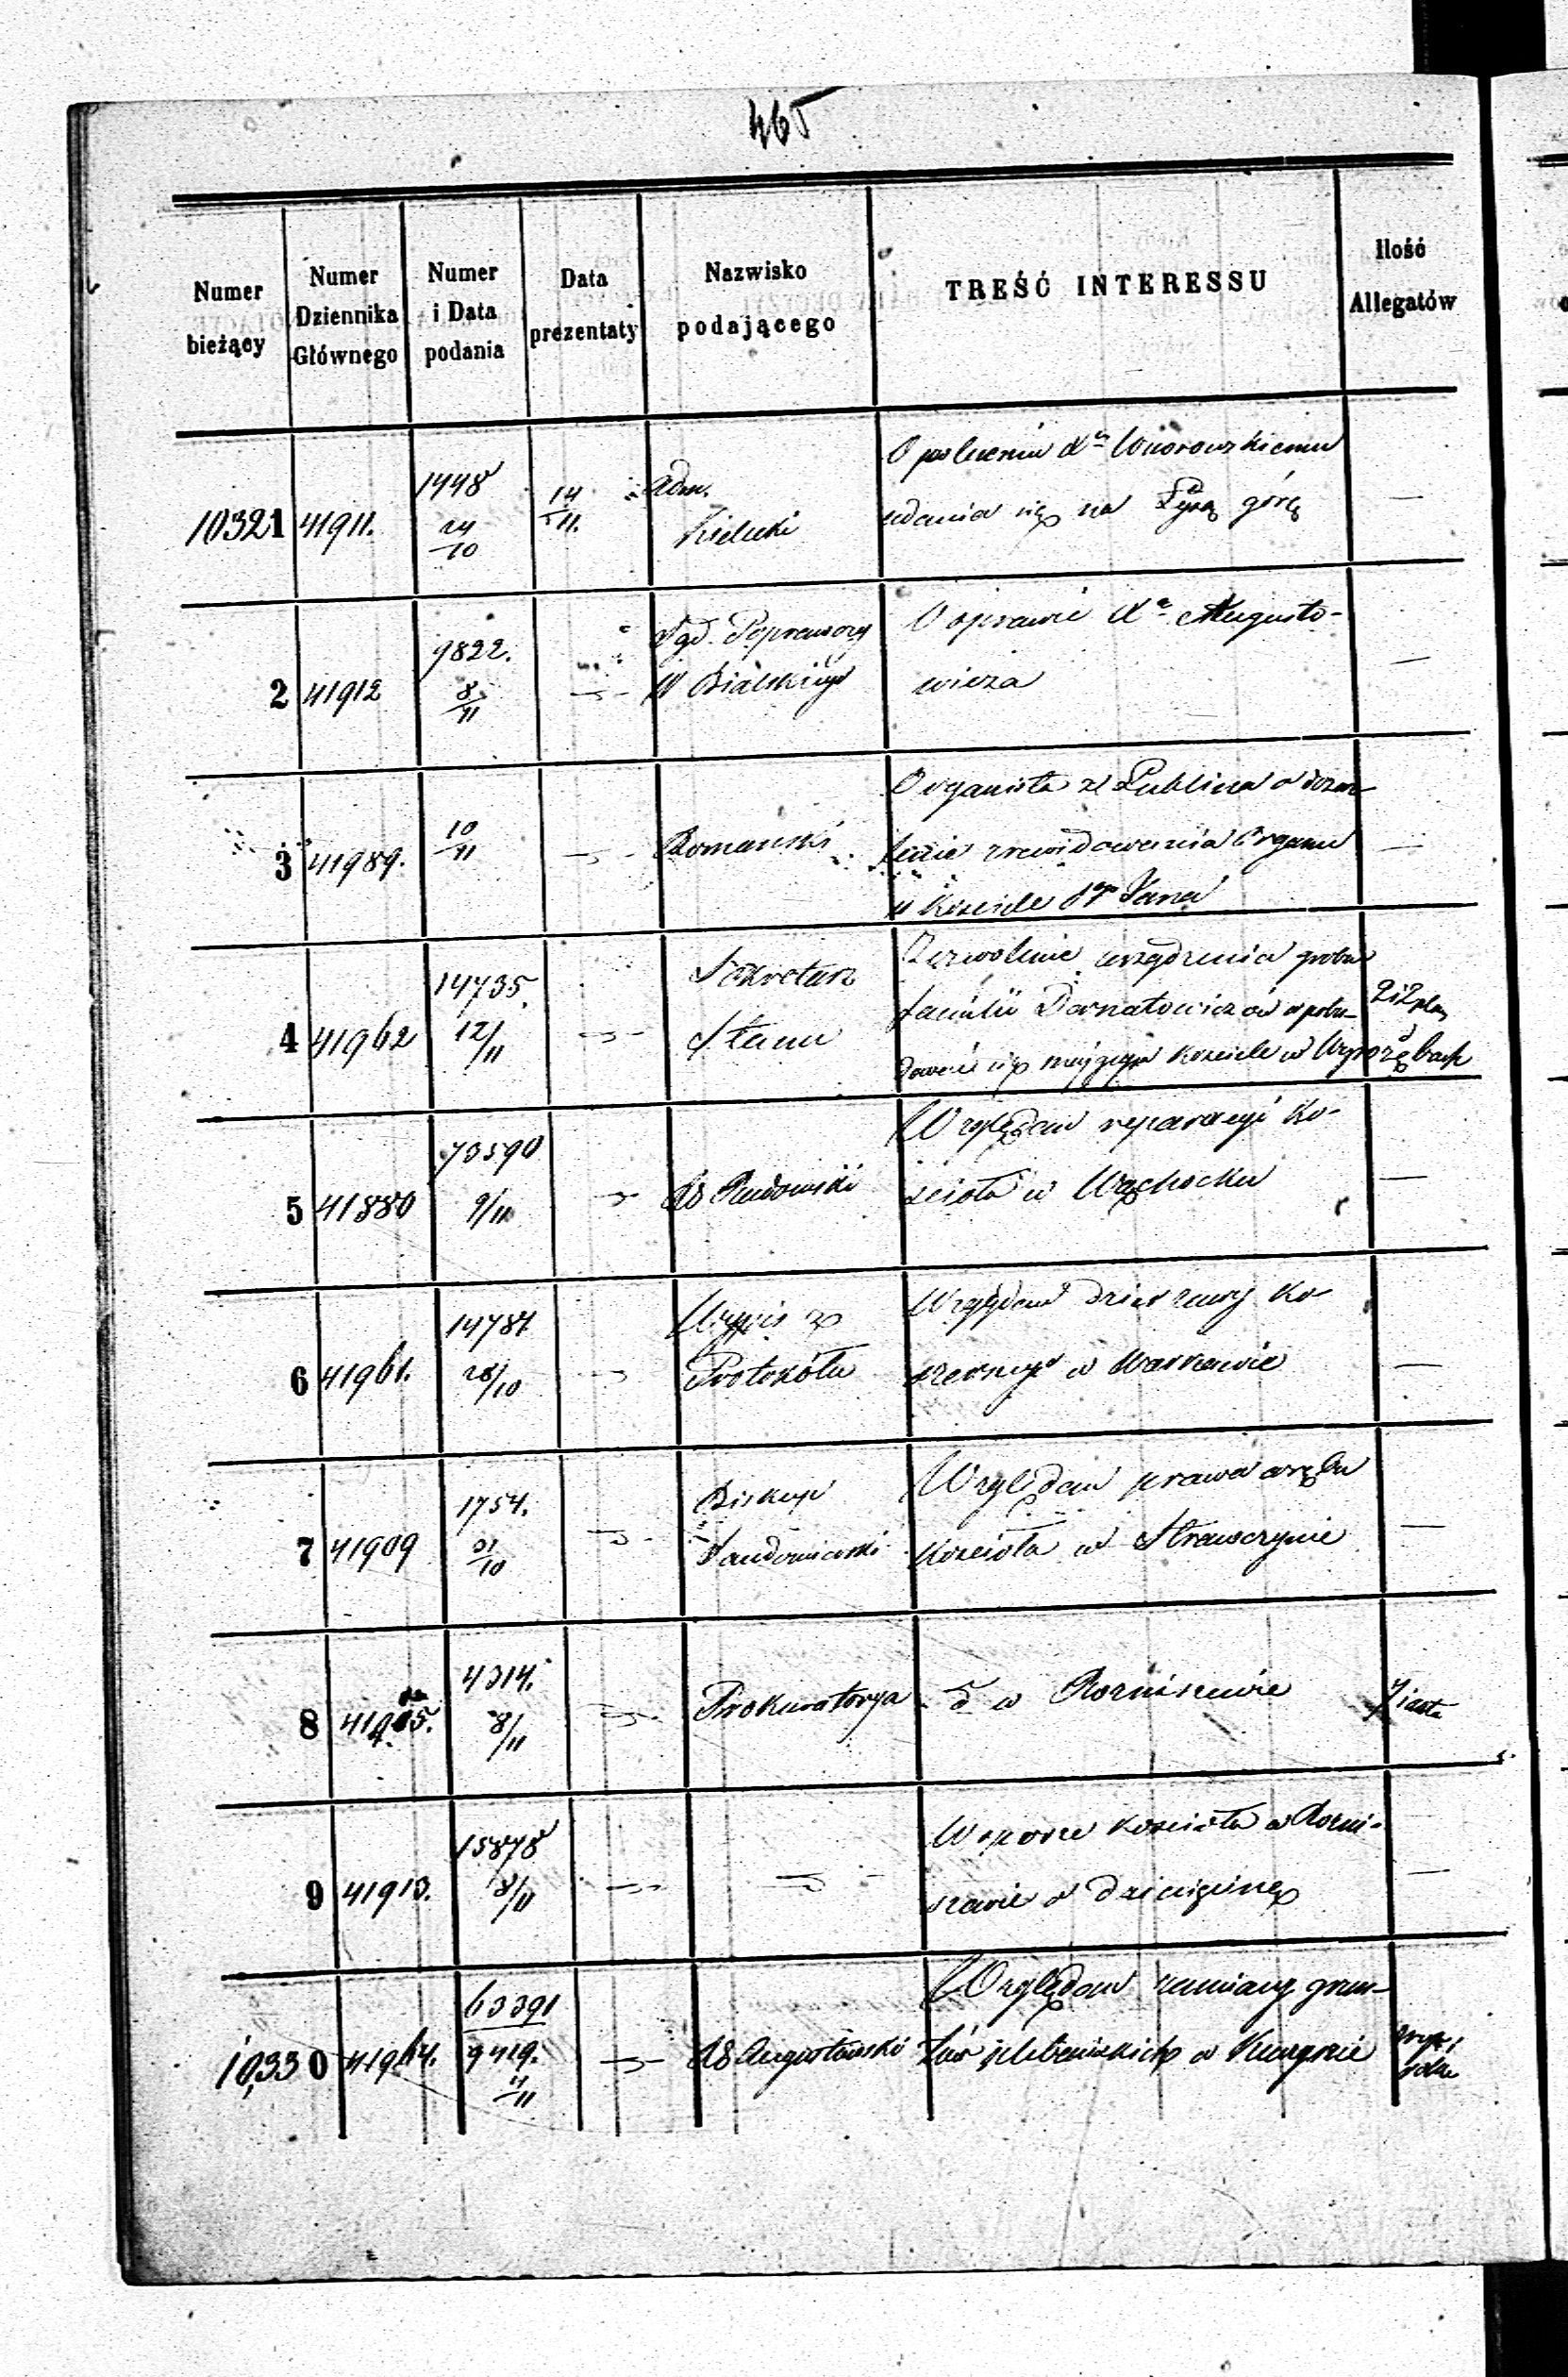 465
Numer bieżący | Numer Dziennika Głównego | Numer i Data podania | Data prezentaty | Nazwisko podającego | TREŚĆ INTERESSU | Ilość Allegatów
10321 | 41911. | 1448 24/10 | 14/11. | Adm. Kielecki | O poleceniu Xu Wnorowskiemu
udania się na Łysą górę | —
2 | 41912 | 9822. 8/11 | — | Sąd Poprawczy W Bialskiego | W sprawie Xa Augusto-
wicza | —
3 | 41989. | 10/11 | — | Romański | Organista z Lublina o dozwo-
lenie zrewidowania Organu
w Kościele Sgo Jana | —
4 | 41962 | 14735. 12/11 | — | Sekretarz Stanu | Zezwolenie urządzenia grobu
familii Darnatowiczów w pobu-
dować się mającym Kościele w Wyrozębach | 2 i 2 plany
5 | 41880 | 73590 9/11 | — | RG Radomski | Względem reparacyi Ko-
ścioła w Wąchocku | —
6 | 41961. | 14784 28/10 | — | Wypis z Protokółu | Względem dzierżawy Ko-
szernego w Warszawie | —
7 | 41909 | 1754. 31/10 | — | Biskup Sandomierski | Względem prawa wrębu
Kościoła w Strawczynie | —
8 | 41905. | 4314. 8/11 | — | Prokuratorya | d° w Rozniszewie
9 | 41913. | 15878 8/11 | — | — | W sporze Kościoła w Rozni-
szewie o dziesięcinę | —
10,330 | 41964. | 63391 9419. 11/11 | — | RG Augustowski | Względem zamiany grun-
tów plebańskich w